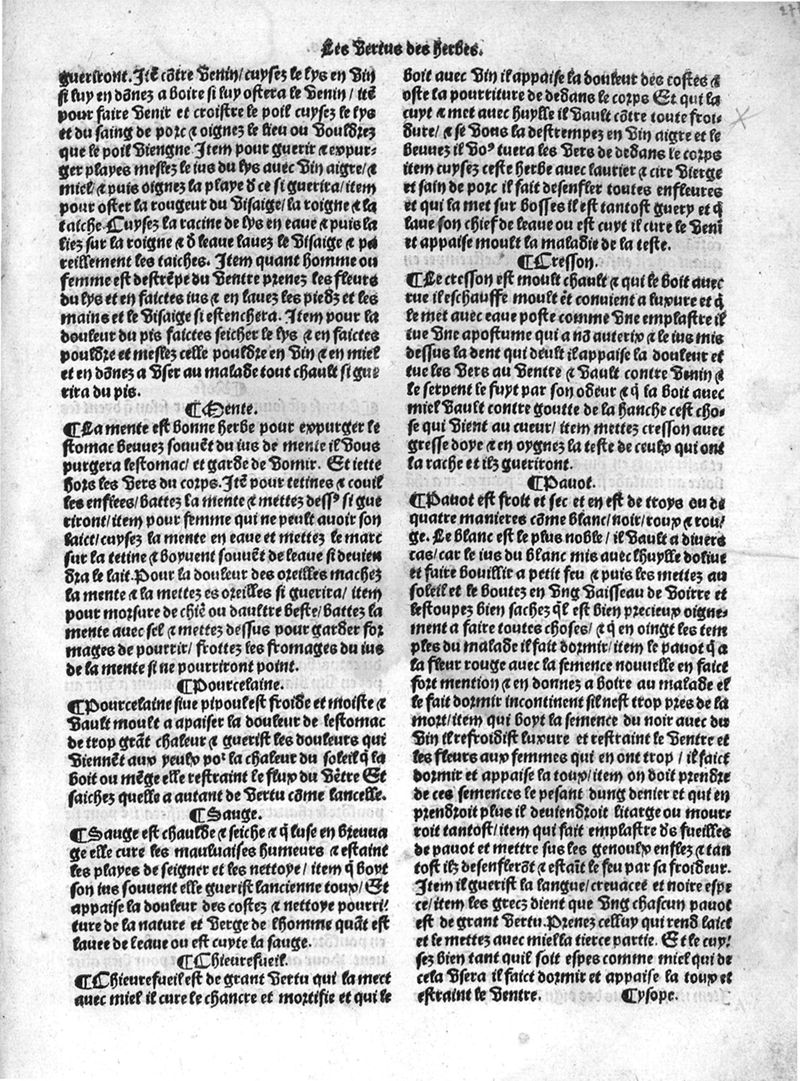 277
Les Vertus des herbes.
gueriront. Itē cōtre Venin/ cuysez le lys en Vin
si luy en dōnez a boire si luy ostera le Venin/ itē
pour faire Venir et croistre le poil cuysez le lys
et du saing de porc ⁊ oignez le lieu ou Vouldrez
que le poil Viengne Item pour guerir ⁊ expur-
ger playes meslez le ius du lys auec Vin aigre/ ⁊
miel ⁊ puis oignez la playe d̄ ce si guerira/ item
pour oster la rougeur du Visaige/ la roigne ⁊ la
taiche. Cuysez la racine de lys en eaue ⁊ puis la
liez sur la roigne ⁊ d̄ leaue lauez le Visaige ⁊ pa
reillement les taiches. Item quant homme ou
femme est destrēpe du Ventre prenez les fleurs
du lys et en faictes ius ⁊ en lauez les piedz et les
mains et le Visaige si estenchera. Item pour la
douleur du pis faictes seicher le lys ⁊ en faictes
pouldre et meslez celle pouldre en Vin ⁊ en miel
et en dōnez a Vser au malade tout chault si gue
rira du pis.
¶Mente.
¶La mente est bonne herbe pour expurger le
stomac beuuez souuēt du ius de mente il Vous
purgera lestomac/ et garde de Vomir. Et iette
hors les Vers du corps. Itē pour tetines ⁊ couil
les enflees/ battez la mente ⁊ mettez dessꝰ si gue
riront/ item pour femme qui ne peult auoir son
laict/ cuysez la mente en eaue et mettez le marc
sur la tetine ⁊ boyuent souuēt de leaue si deuien
dra le lait. Pour la douleur des oreilles machez
la mente ⁊ la mettez es oreilles si guerira/ item
pour morsure de chiē ou daultre beste/ battez la
mente auec sel ⁊ mettez dessus pour garder for
mages de pourrir/ frottez les fromages du ius
de la mente si ne pourriront point.
¶Pourcelaine.
¶Pourcelaine siue pipoul est froide et moiste ⁊
Vault moult a apaiser la douleur de lestomac
de trop grāt chaleur ⁊ guerist les douleurs qui
Viennēt aux yeulx poꝰ la chaleur du soleil q̄ la
boit ou mēge elle restraint le flux du Vētre Et
saichez quelle a autant de Vertu cōme lancelle.
¶Sauge.
¶Sauge est chaulde ⁊ seiche ⁊ q̄ luse en breuua
ge elle cure les mauluaises humeurs ⁊ estaint
les playes de seigner et les nettoye/ item q̄ boyt
son ius souuent elle guerist lancienne toux/ Et
appaise la douleur des costez ⁊ nettoye pourri/
ture de la nature et Verge de lhomme quāt est
lauee de leaue ou est cuyte la sauge.
¶Chieurefueil.
¶Chieurefueil est de grant Vertu qui la mect
auec miel il cure le chancre et mortifie et qui le
boit auec Vin il appaise la douleur des costes ⁊
oste la pourriture de dedans le corps Et qui la
cuyt ⁊ met auec huylle il Vault cōtre toute froi-
dure/ ⁊ se Vous la destrempez en Vin aigre et le
beuuez il Voꝰ tuera les Vers de dedans le corps
item cuysez ceste herbe auec laurier ⁊ cire Vierge
et sain de porc il fait desenfler toutes enfleures
et qui la met sur bosses il est tantost guery et q̄
laue son chief de leaue ou est cuyt il cure le Veni
et appaise moult la maladie de la teste.
¶Cresson.
¶Le cresson est moult chault ⁊ qui le boit auec
rue il eschauffe moult ēt conuient a luxure et q̄
le met auec eaue poste comme Vne emplastre il
tue Vne apostume qui a nō auterix ⁊ le ius mis
dessus la dent qui deult il appaise la douleur et
tue les Vers au Ventre ⁊ Vault contre Venin ⁊
le serpent le fuyt par son odeur ⁊ q̄ la boit auec
miel Vault contre goutte de la hanche cest cho-
se qui Vient au cueur/ item mettez cresson auec
gresse doye ⁊ en oygnez la teste de ceulx qui ont
la rache et ilz gueriront.
¶Pauot.
¶Pauot est froit et sec et en est de troys ou de
quatre manieres cōme blanc/ noir/ roux ⁊ rou/
ge. Le blanc est le plus noble/ il Vault a diuers
cas/ car le ius du blanc mis auec lhuylle doliue
et faire bouillir a petit feu ⁊ puis les mettez au
soleil et le boutez en Vng Vaisseau de Voirre et
lestoupez bien sachez q̄l est bien precieux oigne-
ment a faire toutes choses/ ⁊ q̄ en oingt les tem
ples du malade il fait dormir/ item le pauot q̄ a
la fleur rouge auec la semence nouuelle en faict
fort mention ⁊ en donnez a boire au malade el
le fait dormir incontinent sil nest trop pres de la
mort/ item qui boyt la semence du noir auec du
Vin il refroidist luxure et restraint le Ventre et
les fleurs aux femmes qui en ont trop / il faict
dormir et appaise la toux/ item on doit prendre
de ces semences le pesant dung denier et qui en
prendroit plus il deuiendroit litarge ou mour-
roit tantost/ item qui fait emplastre d̄s fueilles
de pauot et mettre sus les genoulx enflez ⁊ tan
tost ilz desenflerōt ⁊ estaīt le feu par sa froideur.
Item il guerist la langue/ creuacee et noire espe
ce/ item les grecz dient que Vng chascun pauot
est de grant Vertu. Prenez celluy qui rend laict
et le mettez auec miel la tierce partie. Et le cuy/
sez bien tant quil soit espes comme miel qui de
cela Vsera il faict dormir et appaise la toux et
estraint le Ventre. ¶ysope.